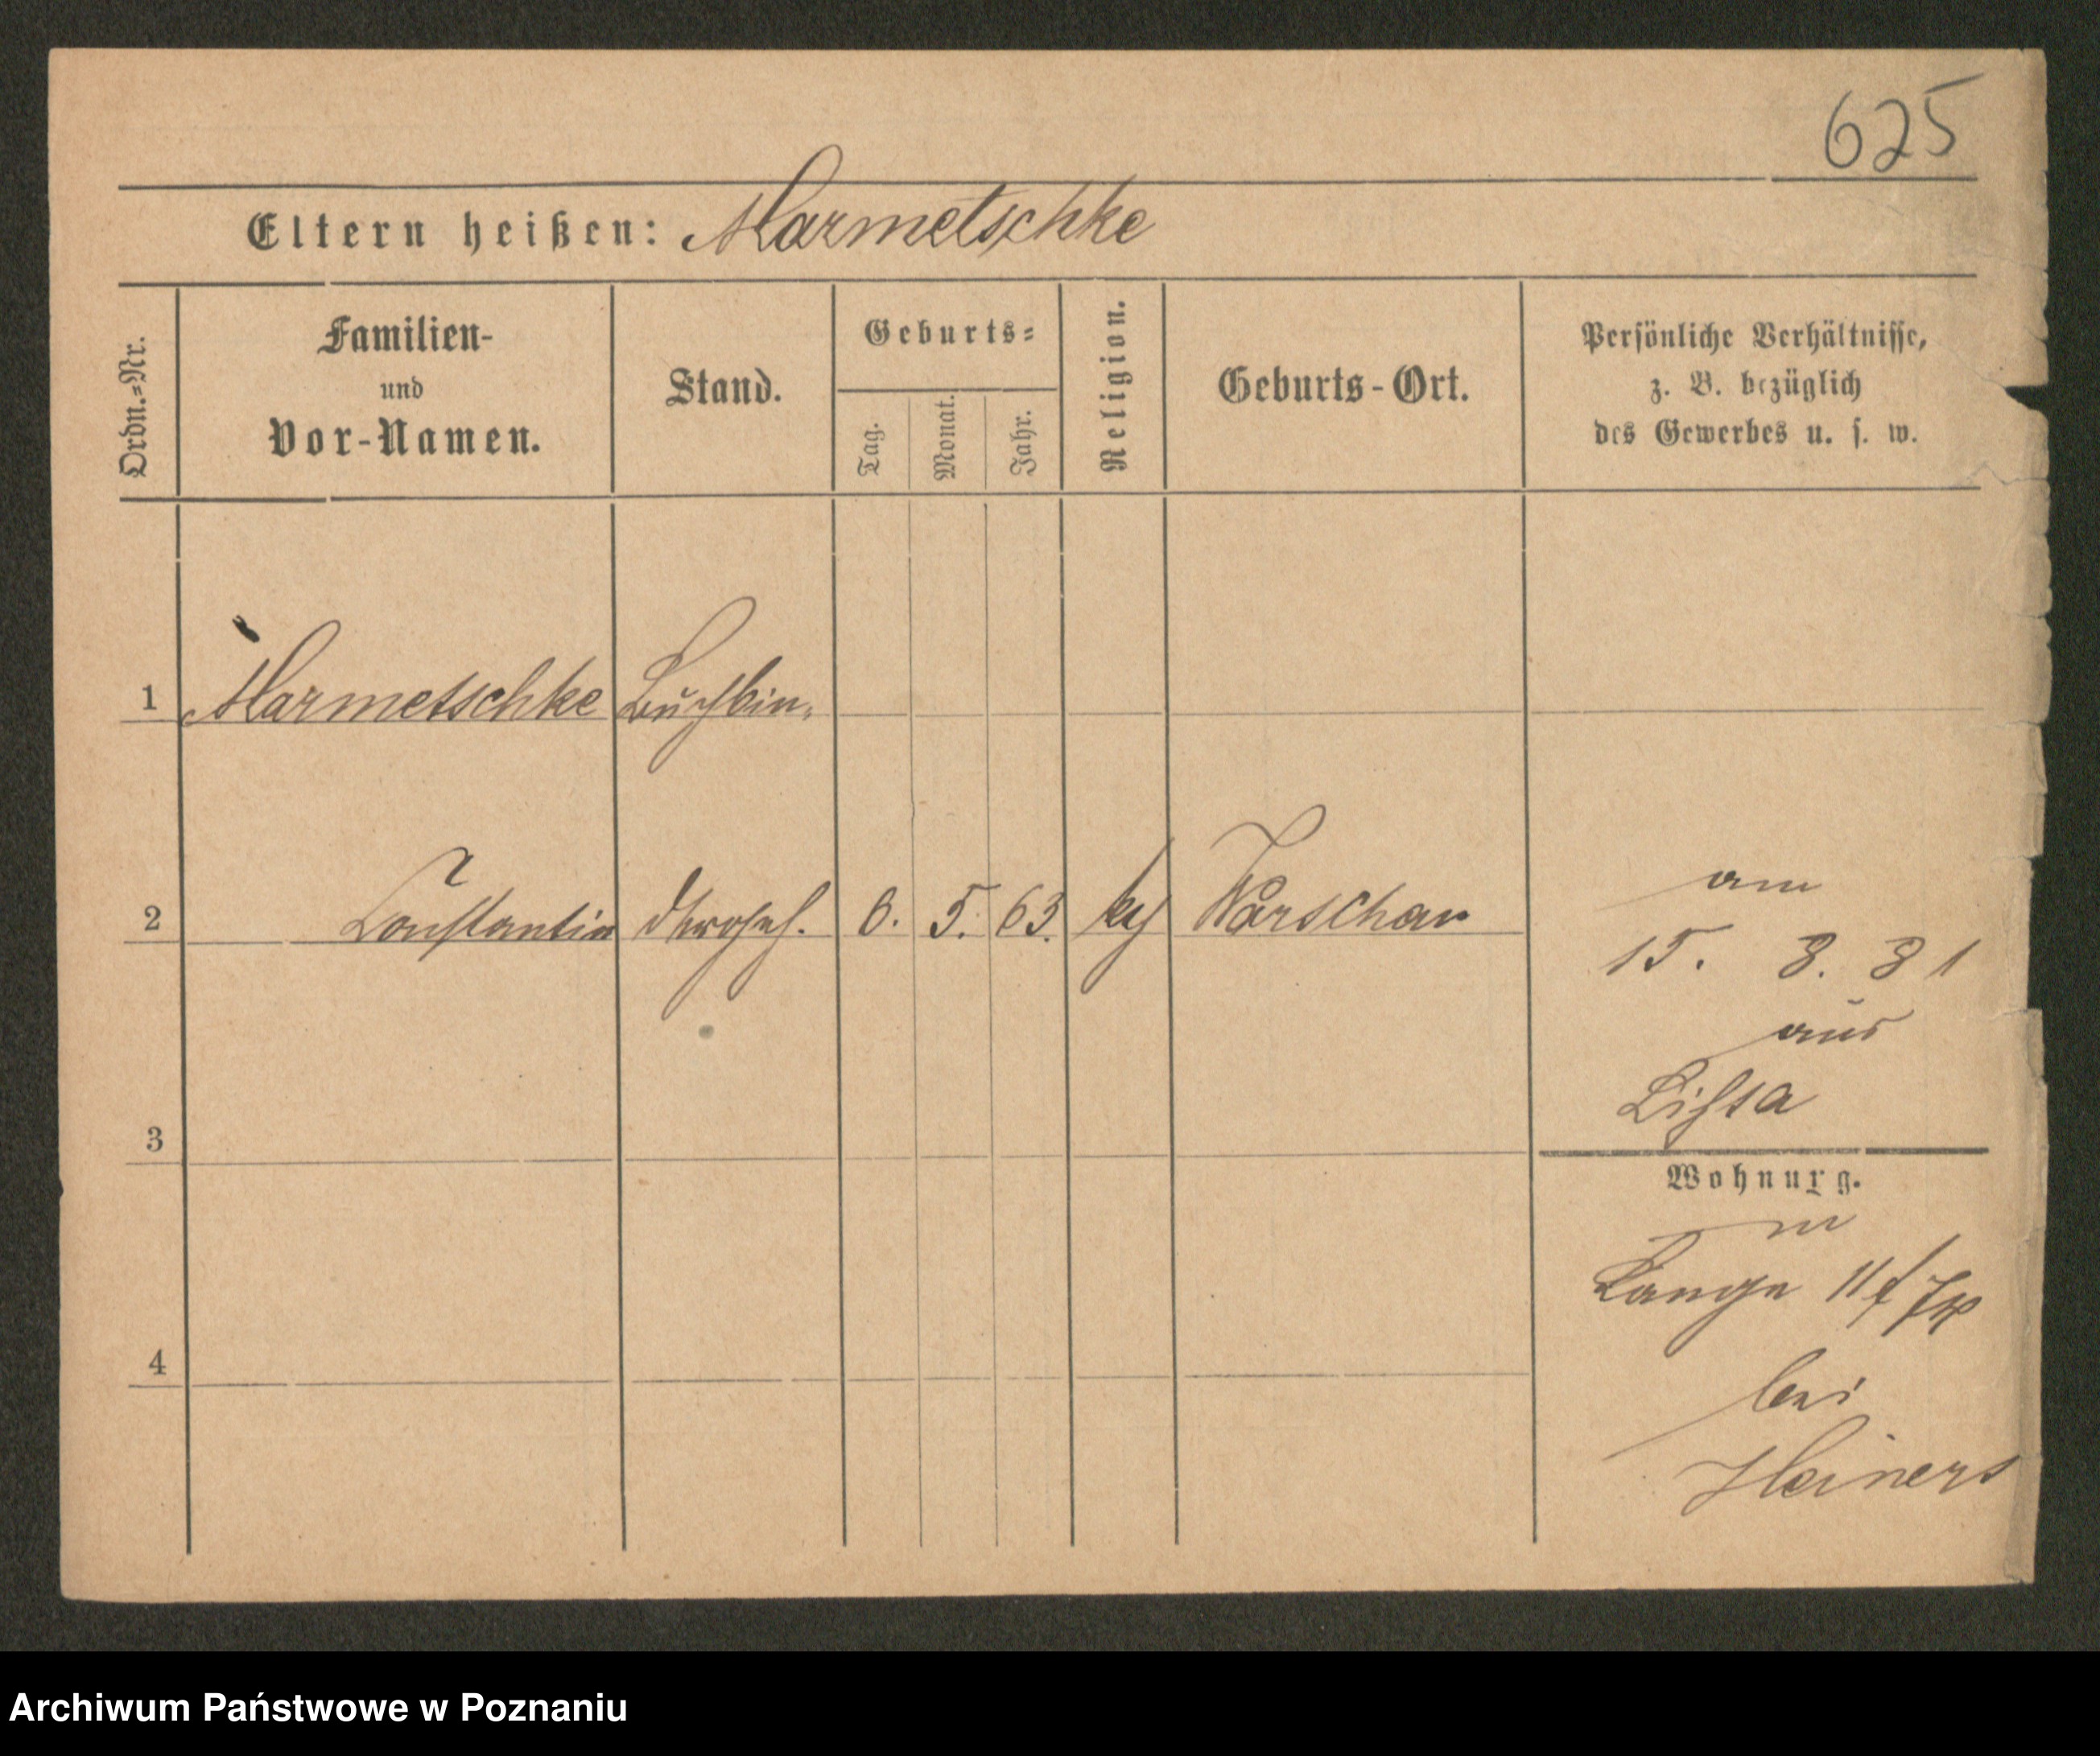 625
Eltern heißen: Marmetschke
Ordn.=Nr.
Familien-
und
Vor-Namen.
Stand.
Geburts=
Tag.
Monat.
Jahr.
Religion.
Geburts-Ort.
Persönliche Verhältnisse,
z. B. bezüglich
des Gewerbes u. s. w.
1 Marmetschke Buchbin-
2 Constantin 6. 5. 63. Warschau
am
15. 8. 81
aus
Lissa
3
Wohnung.
in
Lange 11
bei
4
Heiners
Archiwum Państwowe w Poznaniu